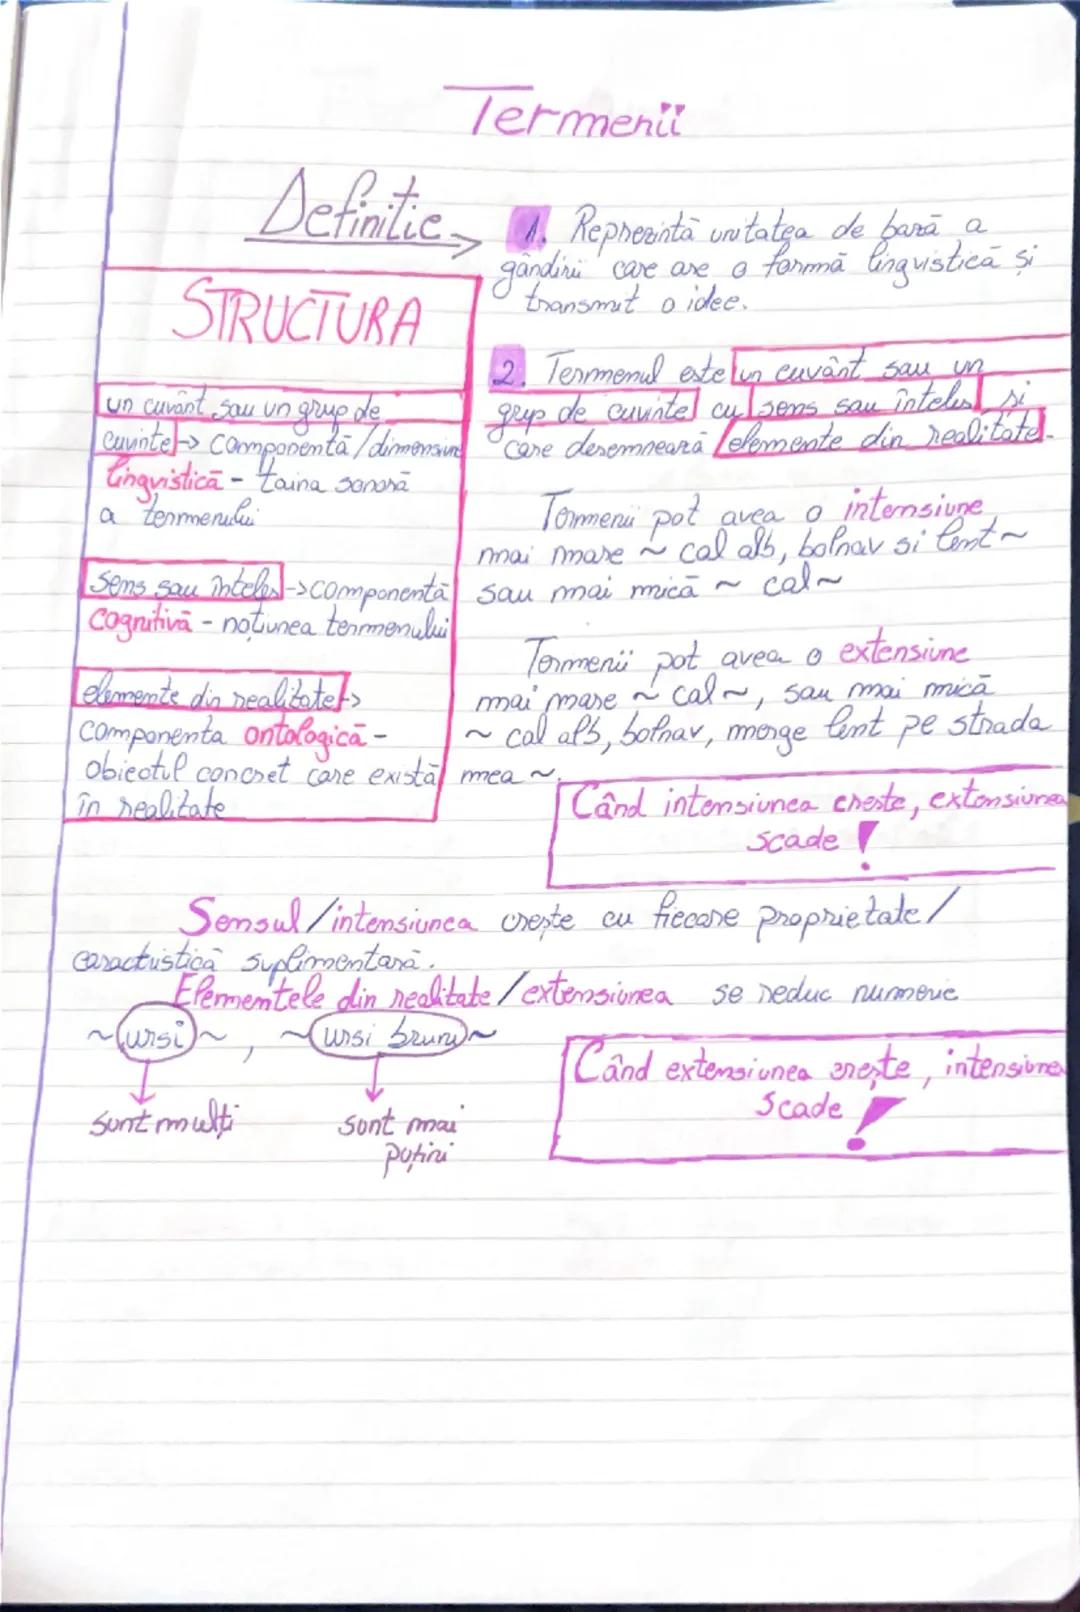 Termenii
Definitie
1. Reprezintă unitatea de bază a
gândirii care are o formă lingvistică și
transmit o idee.
2. Termenul este un cuvânt sau un
grup de cuvinte cu sens sau înteles și
care desemnează elemente din realitate.
Termenii pot avea o intensiune
mai mare ~ cal alb, bolnav si lent ~
sau mai mică ~ cal ~
Termenii pot avea o extensiune
mai mare ~ cal ~, sau mai mică
~ cal alb, bolnav, merge lent pe strada
mea ~.
STRUCTURA
un cuvânt sau un grup de
cuvinte -> componentă/dimensiun
lingvistică - taina sonoră
a termenului
sens sau înteles -> componentă
cognitivă - noțiunea termenului
elemente din realitate ->
componenta ontologică -
obiectul concret care există
în realitate
Când intensiunea creste, extensiunea
scade !
Sensul/intensiunea crește cu fiecare proprietate/
caractristică suplimentară.
Elementele din realitate/extensiunea se reduc numeric
~ ursi ~, ~ ursi bruni ~
sunt mulți
sunt mai
puțini
Când extensiunea crește, intensiunea
scade !